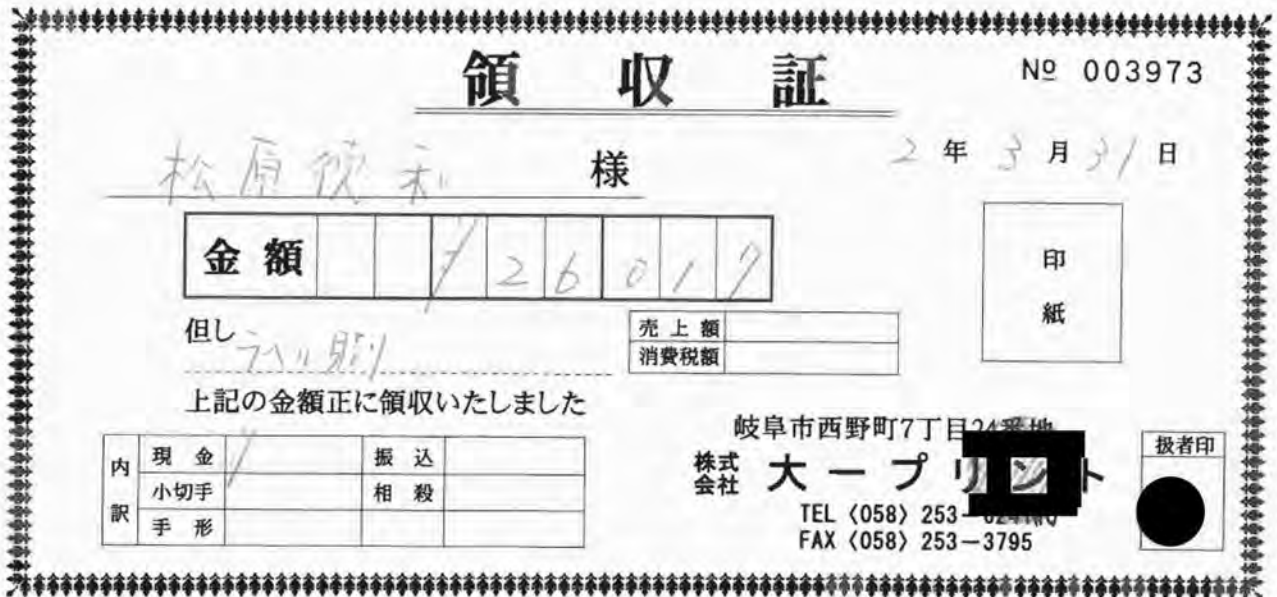 領収証
№ 003973
松原徳和 様
2年3月31日
金額 ¥26017
印紙
但し ラベル貼り
売上額
消費税額
上記の金額正に領収いたしました
内訳
現金
振込
小切手
相殺
手形
岐阜市西野町7丁目24番地
株式会社 大一プリント
TEL〈058〉253-
FAX〈058〉253-3795
扱者印